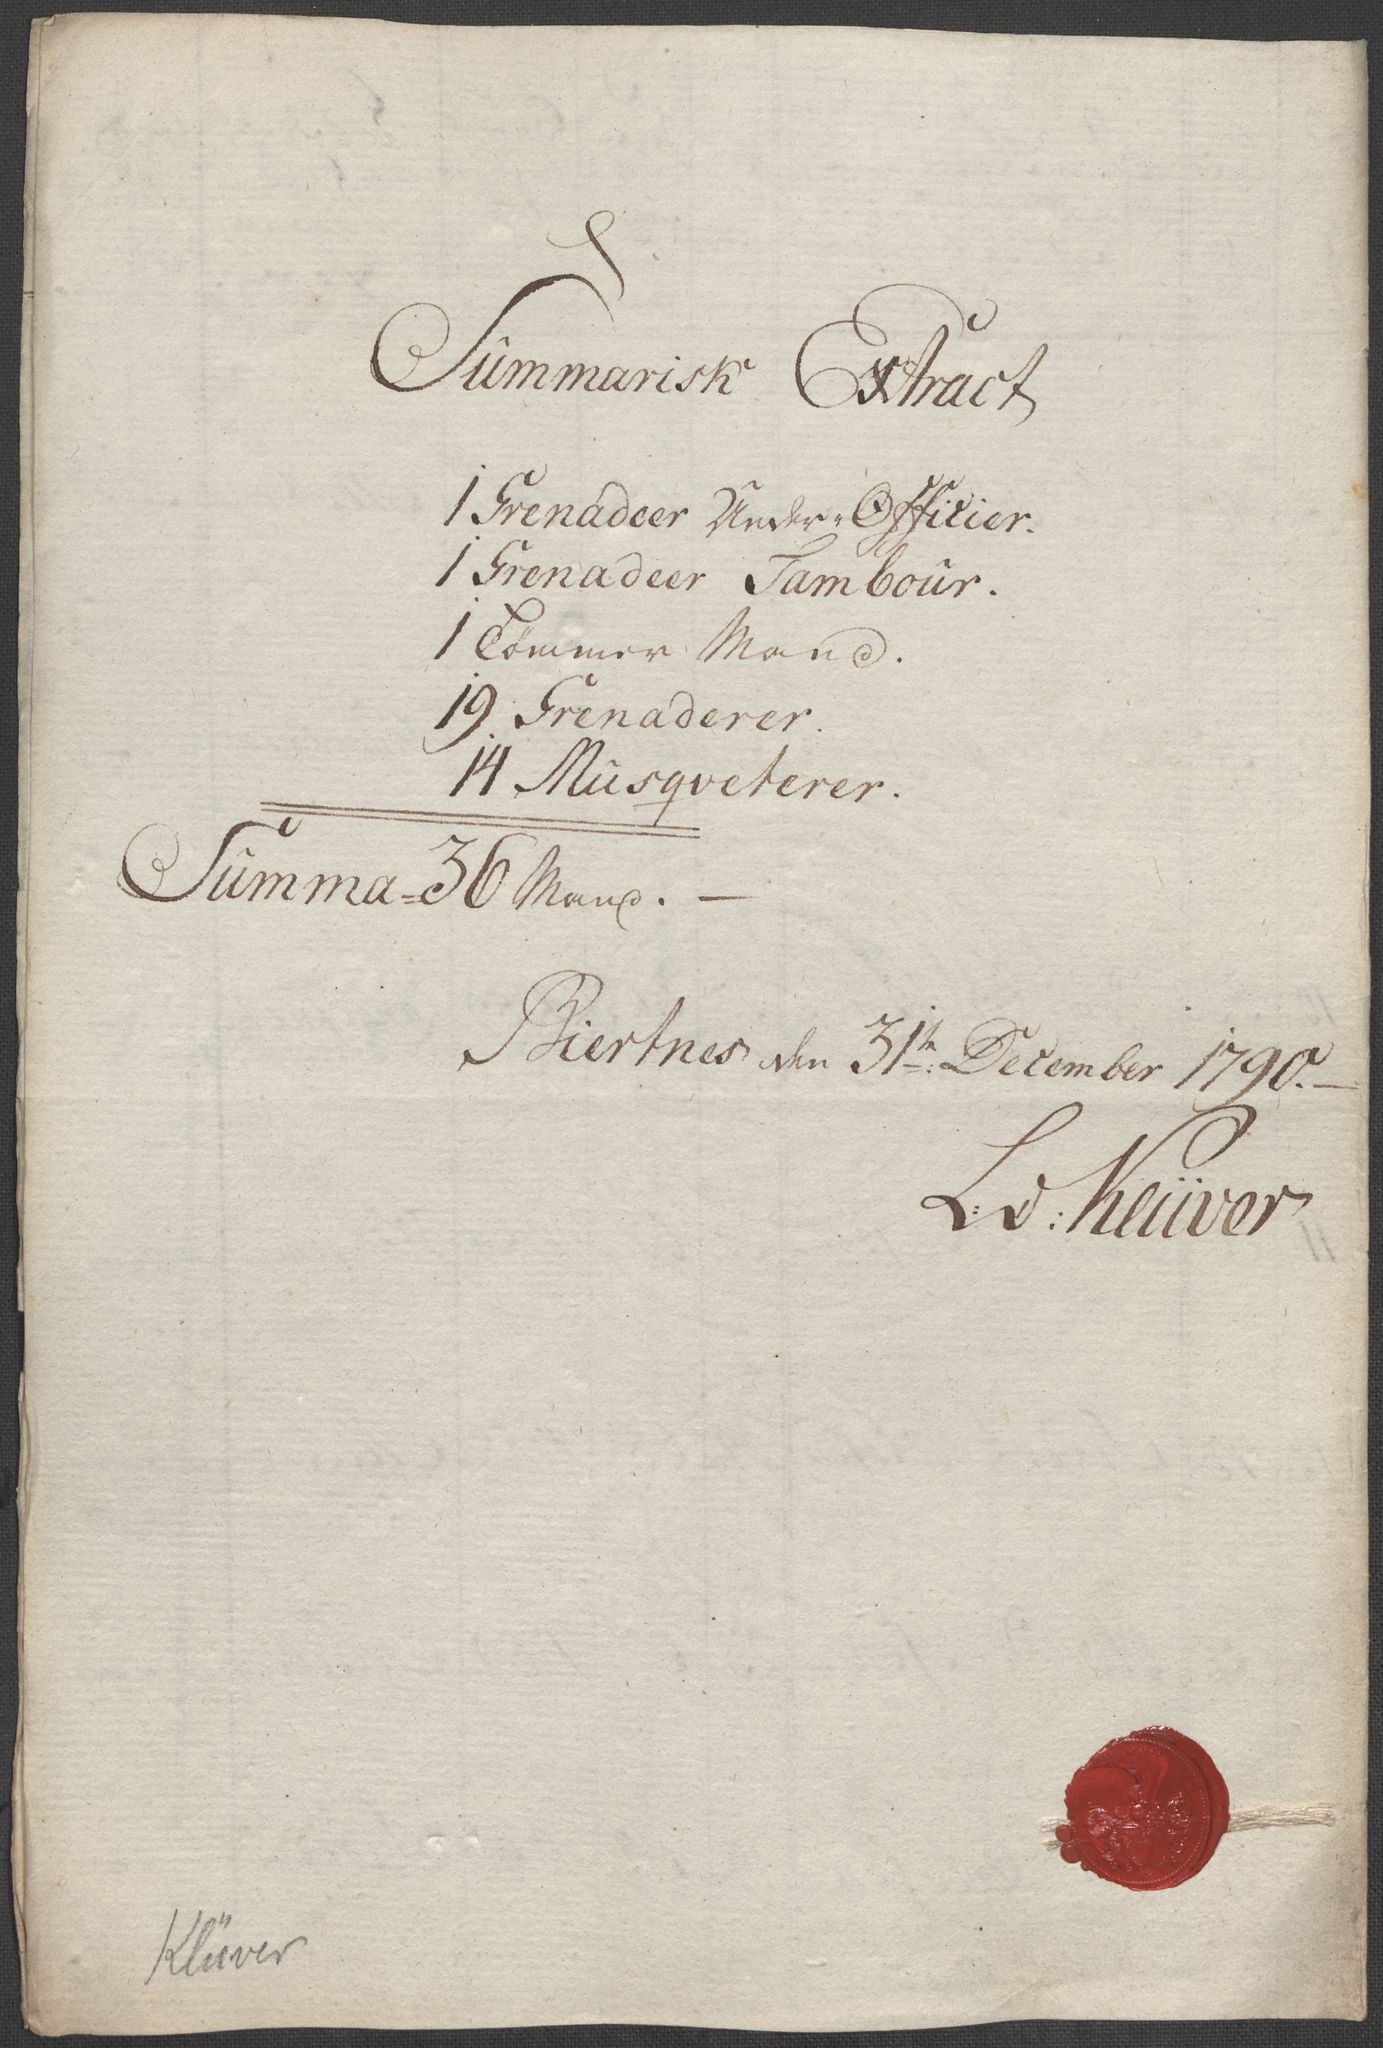 Summarisk Extract
1 Grenadeer Under-Officier.
1 Grenadeer Tambour.
1 Tømmer Mand.
19 Grenaderer.
14 Musqveterer.
Summa = 36 Mand. —
Biertnes den 31te December 1790. —
L: v: Klüver
Klüver